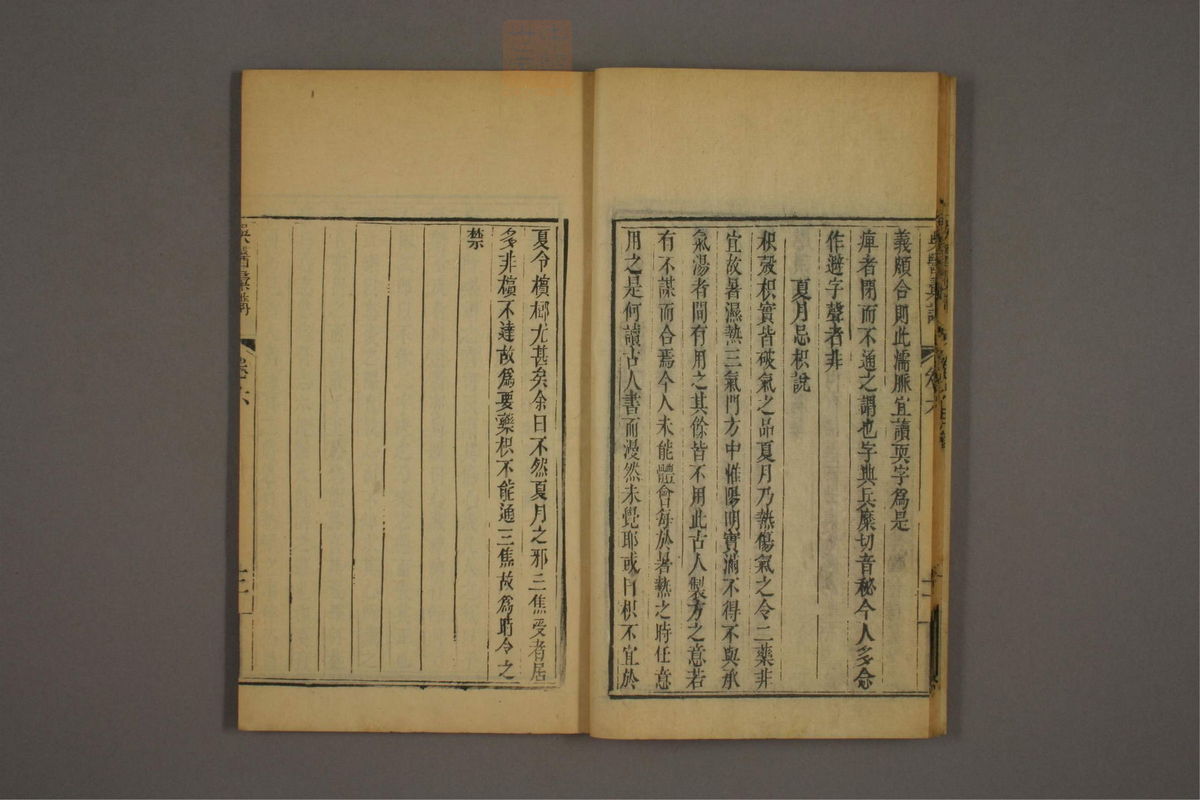 義頗合則此濡脈宜讀耎字爲是
痺者閉而不通之謂也字典兵糜切音秘今人多念
作避字聲者非
夏月忌枳說
枳殼枳實皆破氣之品夏月乃熱傷氣之令二藥非
宜故暑濕熱三氣門方中惟陽明實滿不得不與承
氣湯者間有用之其餘皆不用此古人製方之意若
有不謀而合焉今人未能體會每於暑熱之時任意
用之是何讀古人書而漫然未覺耶或曰枳不宜於
夏令檳榔尤甚矣余曰不然夏月之邪三焦受者居
多非檳不達故爲要藥枳不能通三焦故爲時令之
禁
吳醫彙講
卷六
三